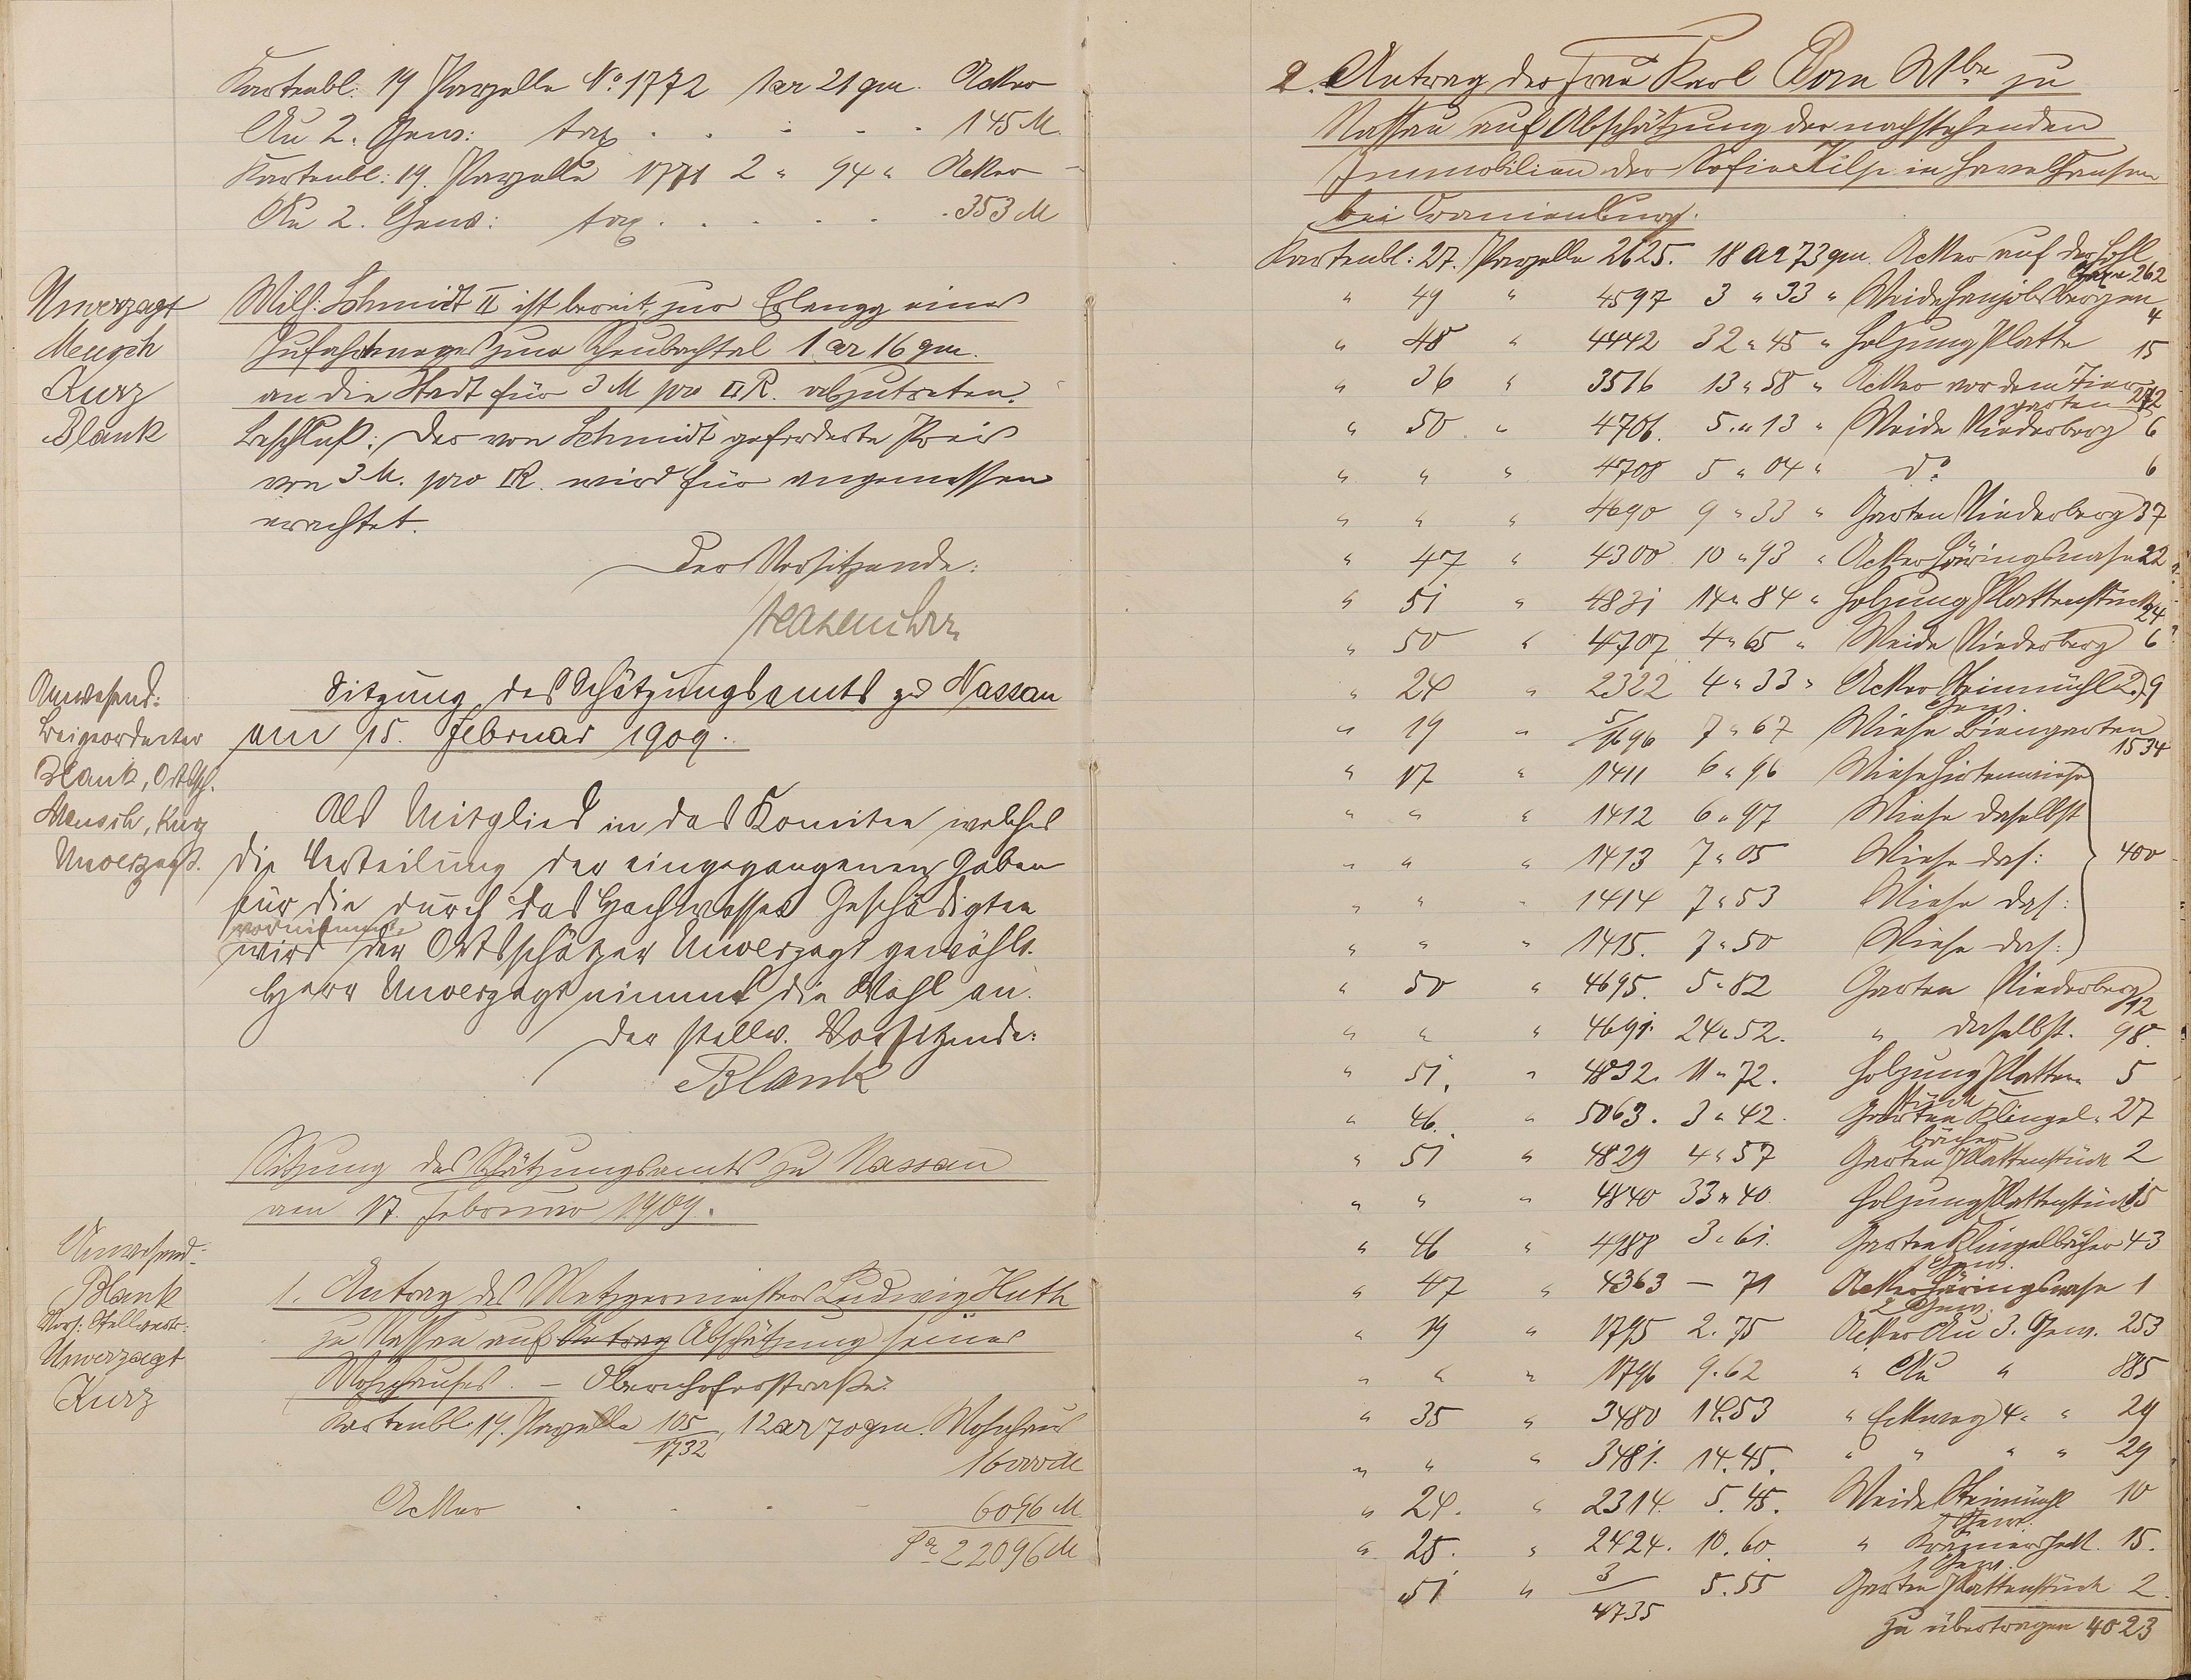 Kartenbl. 19 Parzelle No. 1772 1 ar 21 qm. Acker
Au 2. Gew: tax . . . . . 145 M.
Kartenbl: 19. Parzelle 1771 2 " 94 " Acker
Au 2. Gew: tax . . . . . 353 M
Unverzagt
Meusch
Kurz
Blank
Wilh: Schmidt II ist bereit, zur Erlangg eines
Zufahrtweges zum 1 ar 16 qm.
an die Stadt für 3 M pro □R. abzutreten.
Beschluß: Der von Schmidt geforderte Preis
von 3 M. pro □R. wird für angemessen
erachtet.
Der Vorsitzende:
Anwesend:
Beigeordneter
Blank, Ortssch.
Meusch, Kurz
Unverzagt.
Sitzung des Schätzungsamts zu Nassau
am 15. Februar 1909.
Als Mitglied in das Komitee welches
die Verteilung der eingegangenen Gaben
für die durch das Hochwasser Geschädigten
vornimmt
wird der Ortsschätzer Unverzagt gewählt.
Herr Unverzagt nimmt die Wahl an.
Der stellv. Vorsitzende:
Blank
Sitzung des Schätzungsamts zu Nassau
am 17. Februar 1909.
Anwesend:
Blank
Vors: Stellvertr:
Unverzagt
Kurz
1. Antrag des Metzgermeisters Ludwig Huth
zu Nassau auf Antrag Abschätzung seines
Wohnhauses. – Obernhoferstraße.
Kartenbl. 19. Parzelle 105/1732, 12 ar 70 qm. Wohnhaus
16000 M
Acker . . . . 6096 M
Sa 22096 M
2. Antrag der Frau Karl Born Wbe. zu
Nassau auf Abschätzung der nachstehenden
Immobilien der Sofie in Havelhausen
bei Oranienburg.
Kartenbl: 27. Parzelle 2625. 18 ar 73 qm. Acker auf der Hohl
Gew 262
" 49 " 4597 3 " 33 " Weide 4
" 48 " 4442 32 " 45 " Holzung Platte 15
" 36 " 3516 13 " 58 " Acker vor dem Tier-
garten 272
" 50 " 4706. 5 " 13 " Weide Niederberg 6
" " " 4708 5 " 04 " do 6
" " " 4690 9 " 33 " Garten Niederberg 37
" 47 " 4300 10 " 93 " Acker Häringsnase 22
" 51 " 4831 14 " 84 " Holzung Plattenstück 24
" 50 " 4707 4 " 65 " Weide Niederberg 6
" 24 " 2322 4 " 33 " Acker Steinmühl 2. 9
Gew.
" 19 " 5/1696 7 " 67 Wiese Biengarten
1534
" 17 " 1411 6 " 96 Wiese Hirtenwiese
" " " 1412 6 " 97 Wiese daselbst
" " " 1413 7 " 05 Wiese das: 400
" " " 1414 7 " 53 Wiese das:
" " " 1415. 7 " 50 Wiese das:
" 50 " 4695. 5 " 82 Garten Niederberg
12
" " " 4691. 24 " 52. " daselbst. 98
" 51. " 4832. 11 " 72. Holzung Platten- 5
stück
" 46. " 5063. 3 " 42. Garten Klingel- 27
bächer
" 51 " 4829 4 " 57 Garten Plattenstück 2
" " " 4840 33 " 40. Holzung Plattenstück 15
" 46 " 4988 3 " 61. Garten Klingelbächer 43
1 Gew.
" 47 " 4363 – 71 Acker Häringsnase 1
2 Gew.
" 19 " 1795 2. 75 Acker Au 3. Gew. 253
" " " 1796 9. 62 " Au " 885
" 35 " 3480 14.53 " Eckweg 4. " 29
" " " 3481. 14. 45. " " " " 29
" 24. " 2314. 5. 45. Weide Steinmühl 10
1 Gew.
" 25. " 2424. 10. 60. " 15.
1 Gew.
51 " 3/4735 5. 55 Garten Plattenstück 2.
zu übertragen 4023